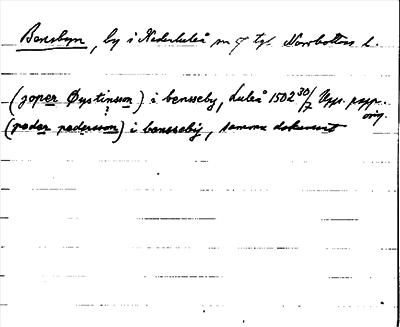 Bensbyn, by i Nederluleå sn o tgl. Norrbottens l.
(joper Øystinsson) i bensseby, Luleå 1502 30/7 Upps. papp. orig.
(peder pedersson) i bensseby, samma dokument